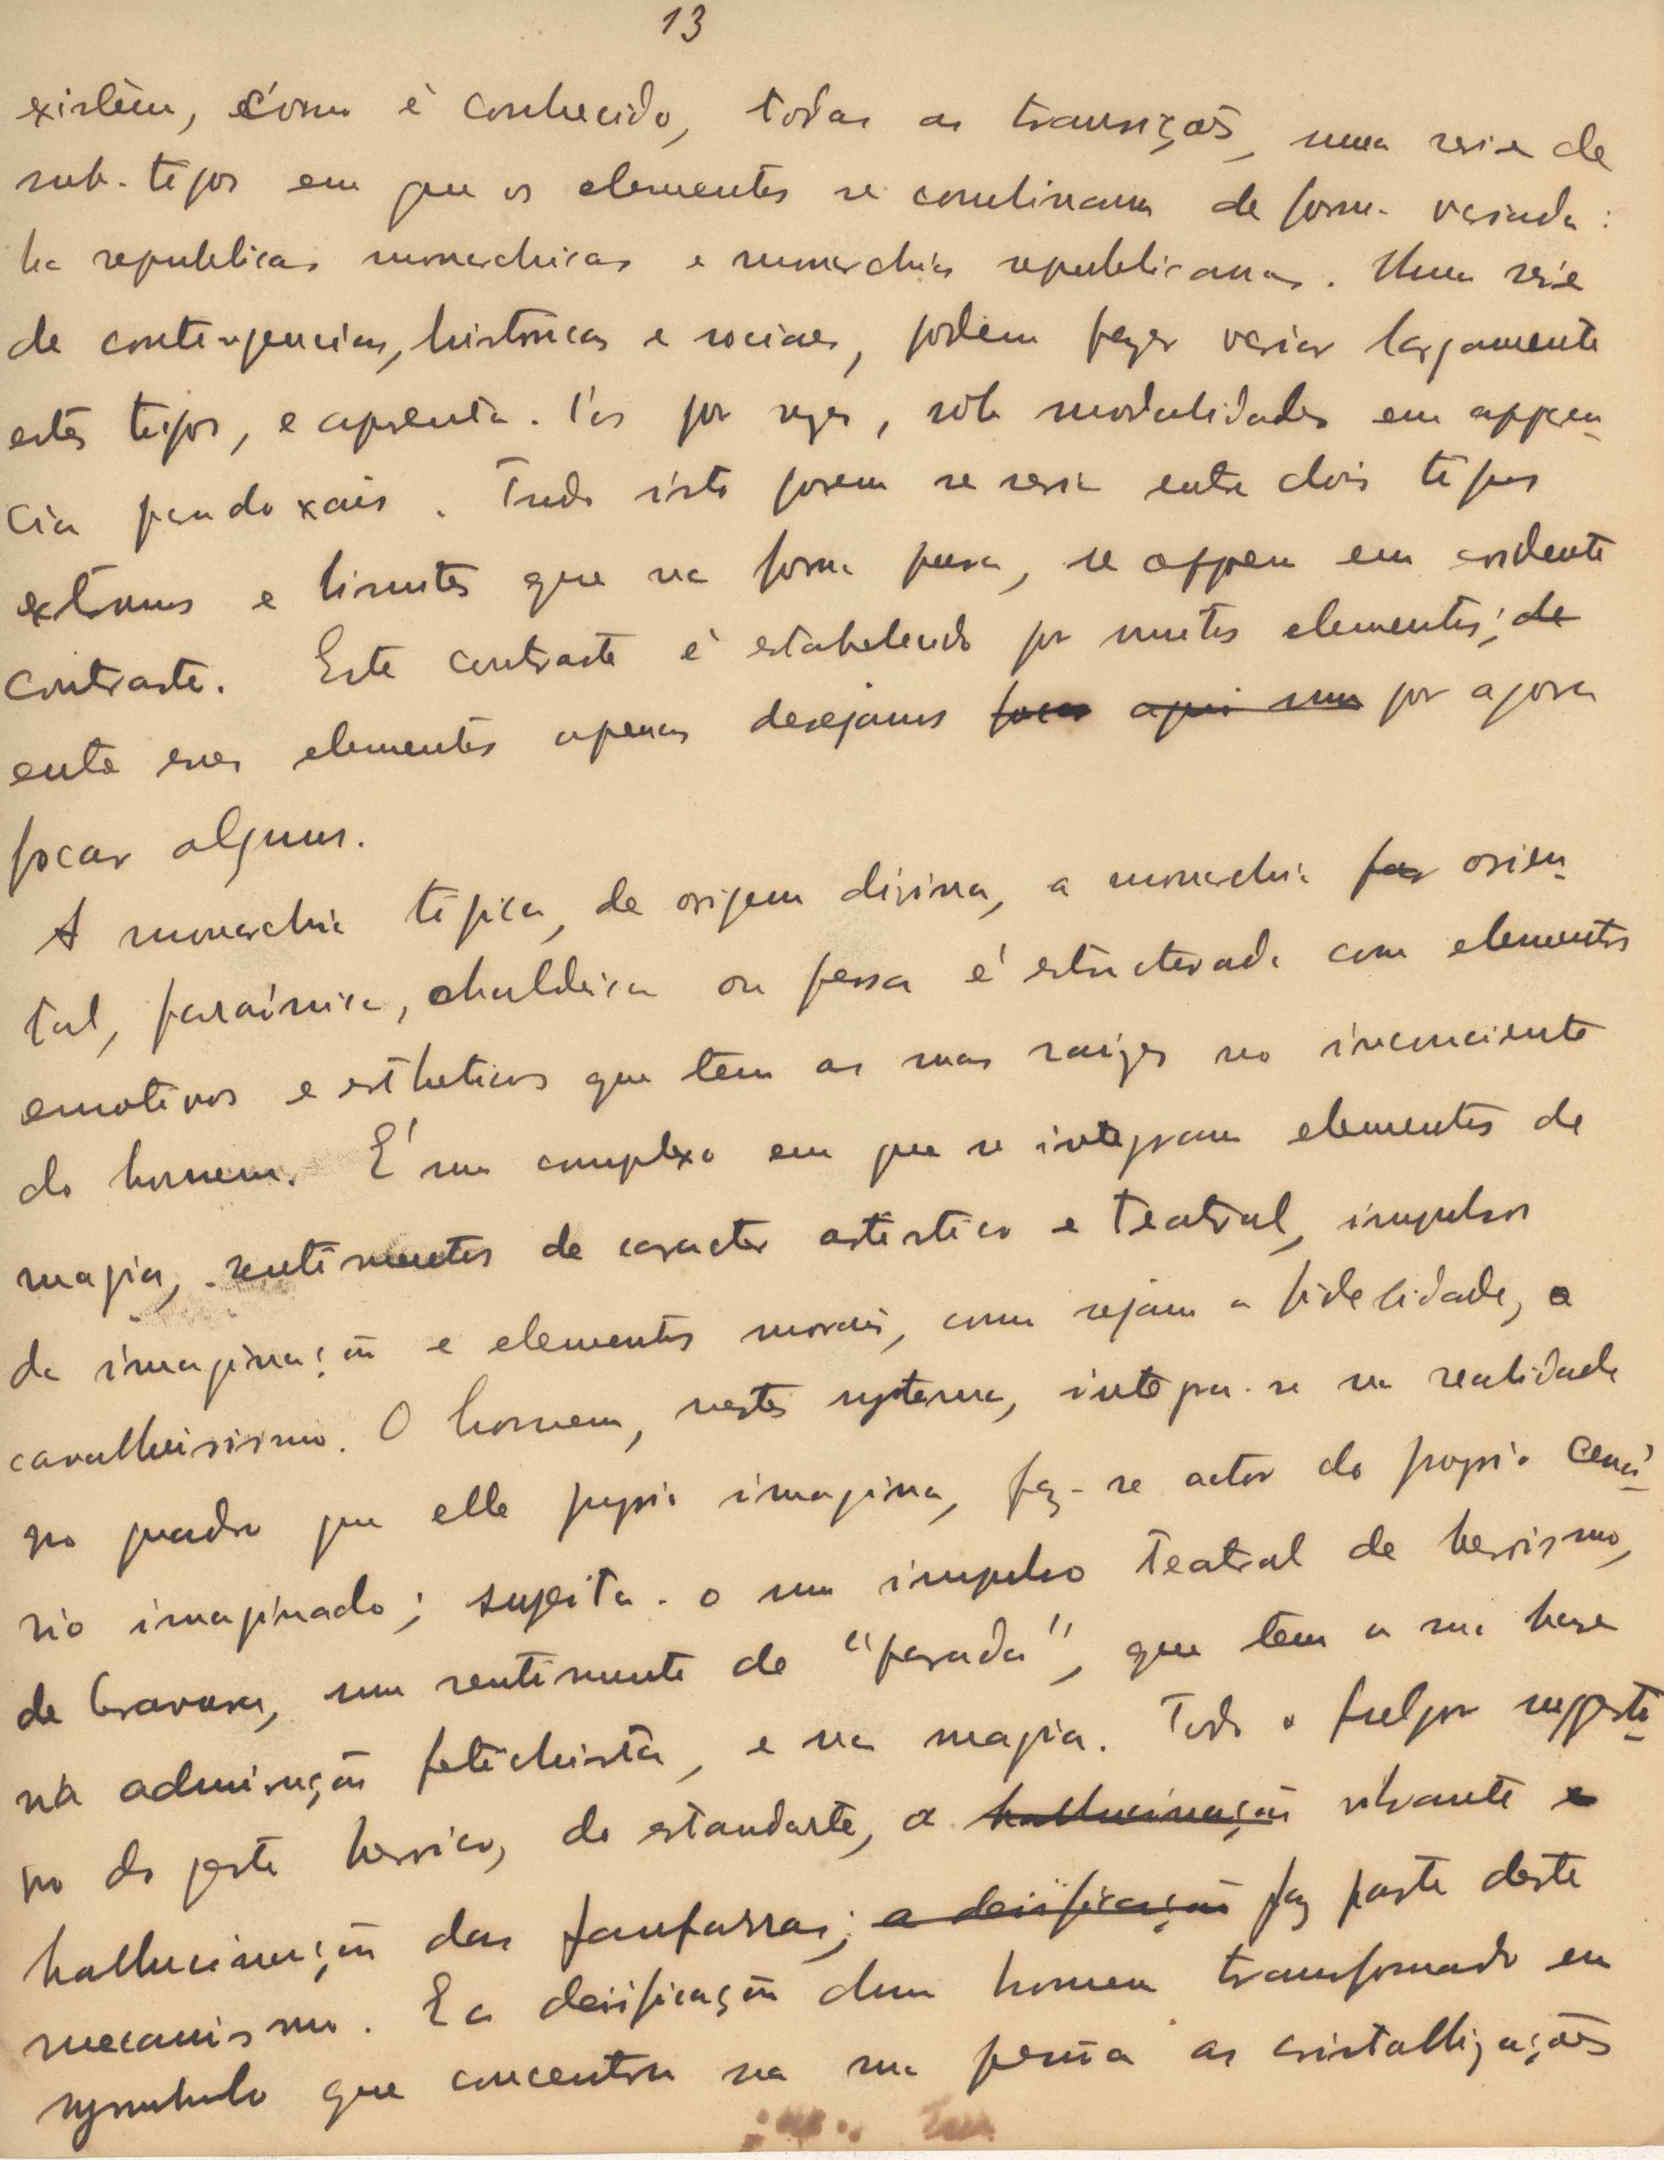 13
existem, como é conhecido, todas as transições, uma serie de
sub-tipos em que os elementos se combinam de forma variada:
ha republicas monarchicas e monarchias republicanas. Uma serie
de contingencias, historicas e sociaes, podem fazer variar largamente
estes tipos, e apresenta-los por vezes, sob modalidades em apparen-
cia paradoxais. Tudo isto porem se seria entre dois tipos
extremos e limites que na forma pura, se oppoem em evidente
contraste. Este contraste é estabelecido por muitos elementos; de
entre esses elementos apenas desejamos focar aqui um por agora
focar alguns.
A monarchia tipica, de origem divina, a monarchia far orien-
tal, faraónica, chaldaica ou persa é estructurada com elementos
emotivos e estheticos que tem as suas raizes no inconciente
do homem. É um complexo em que se integram elementos de
magia, sentimentos de caracter artistico e teatral, impulsos
da imaginação e elementos morais, como sejam a fidelidade, o
cavalheirismo. O homem, neste systema, integra-se na realidade
no quadro que elle proprio imagina, faz-se actor do proprio cená-
rio imaginado; sugeita-o um impulso teatral de heroismo,
de bravura, um sentimento de "parada", que tem a sua base
na admiração fetichista, e na magia. Todo o fulgor suggesti-
vo do gesto heroico, do estandarte, a hallucinação vibrante e
hallucinação das fanfarras; a deificação faz parte deste
mecanismo. E a deificação dum homem transformado em
symbolo que concentra na sua pessoa as cristallizações